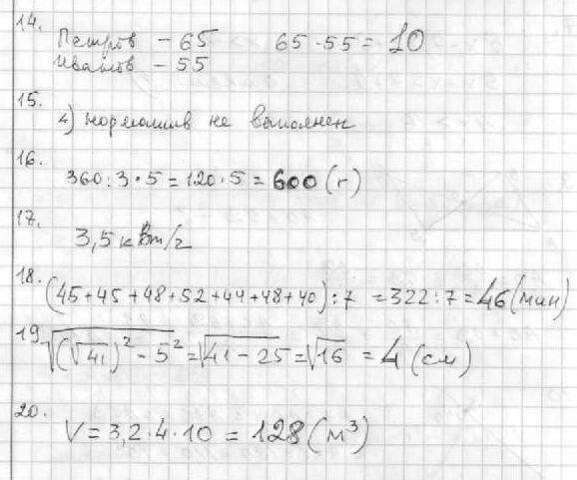 14.
Петров - 65 65-55 = 10
Иванов - 55
15.
4) норматив не выполнен
16.
360:3·5=120·5=600(г)
17.
3,5 кВт/г
18.
(45+45+48+52+44+48+40):7 =322:7=46(мин)
19. √(√41)²-5²=√41-25=√16 =4 (см)
20.
V=3,2·4·10 = 128(м³)